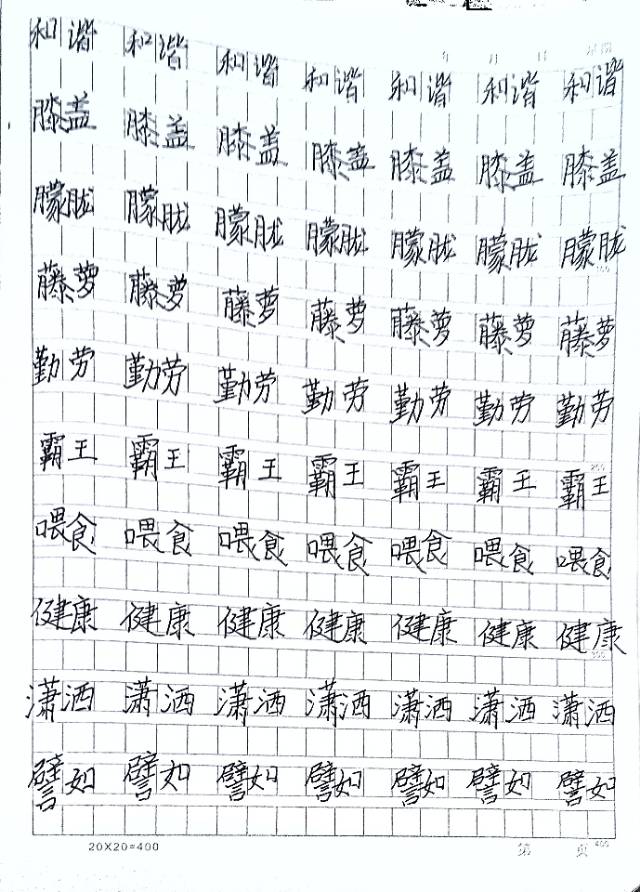 年 月 日 星期
和谐 和谐 和谐 和谐 和谐 和谐 和谐
膝盖 膝盖 膝盖 膝盖 膝盖 膝盖 膝盖
朦胧 朦胧 朦胧 朦胧 朦胧 朦胧 朦胧
藤萝 藤萝 藤萝 藤萝 藤萝 藤萝 藤萝
勤劳 勤劳 勤劳 勤劳 勤劳 勤劳 勤劳
霸王 霸王 霸王 霸王 霸王 霸王 霸王
喂食 喂食 喂食 喂食 喂食 喂食 喂食
健康 健康 健康 健康 健康 健康 健康
潇洒 潇洒 潇洒 潇洒 潇洒 潇洒 潇洒
譬如 譬如 譬如 譬如 譬如 譬如 譬如
20X20=400 第 页 400